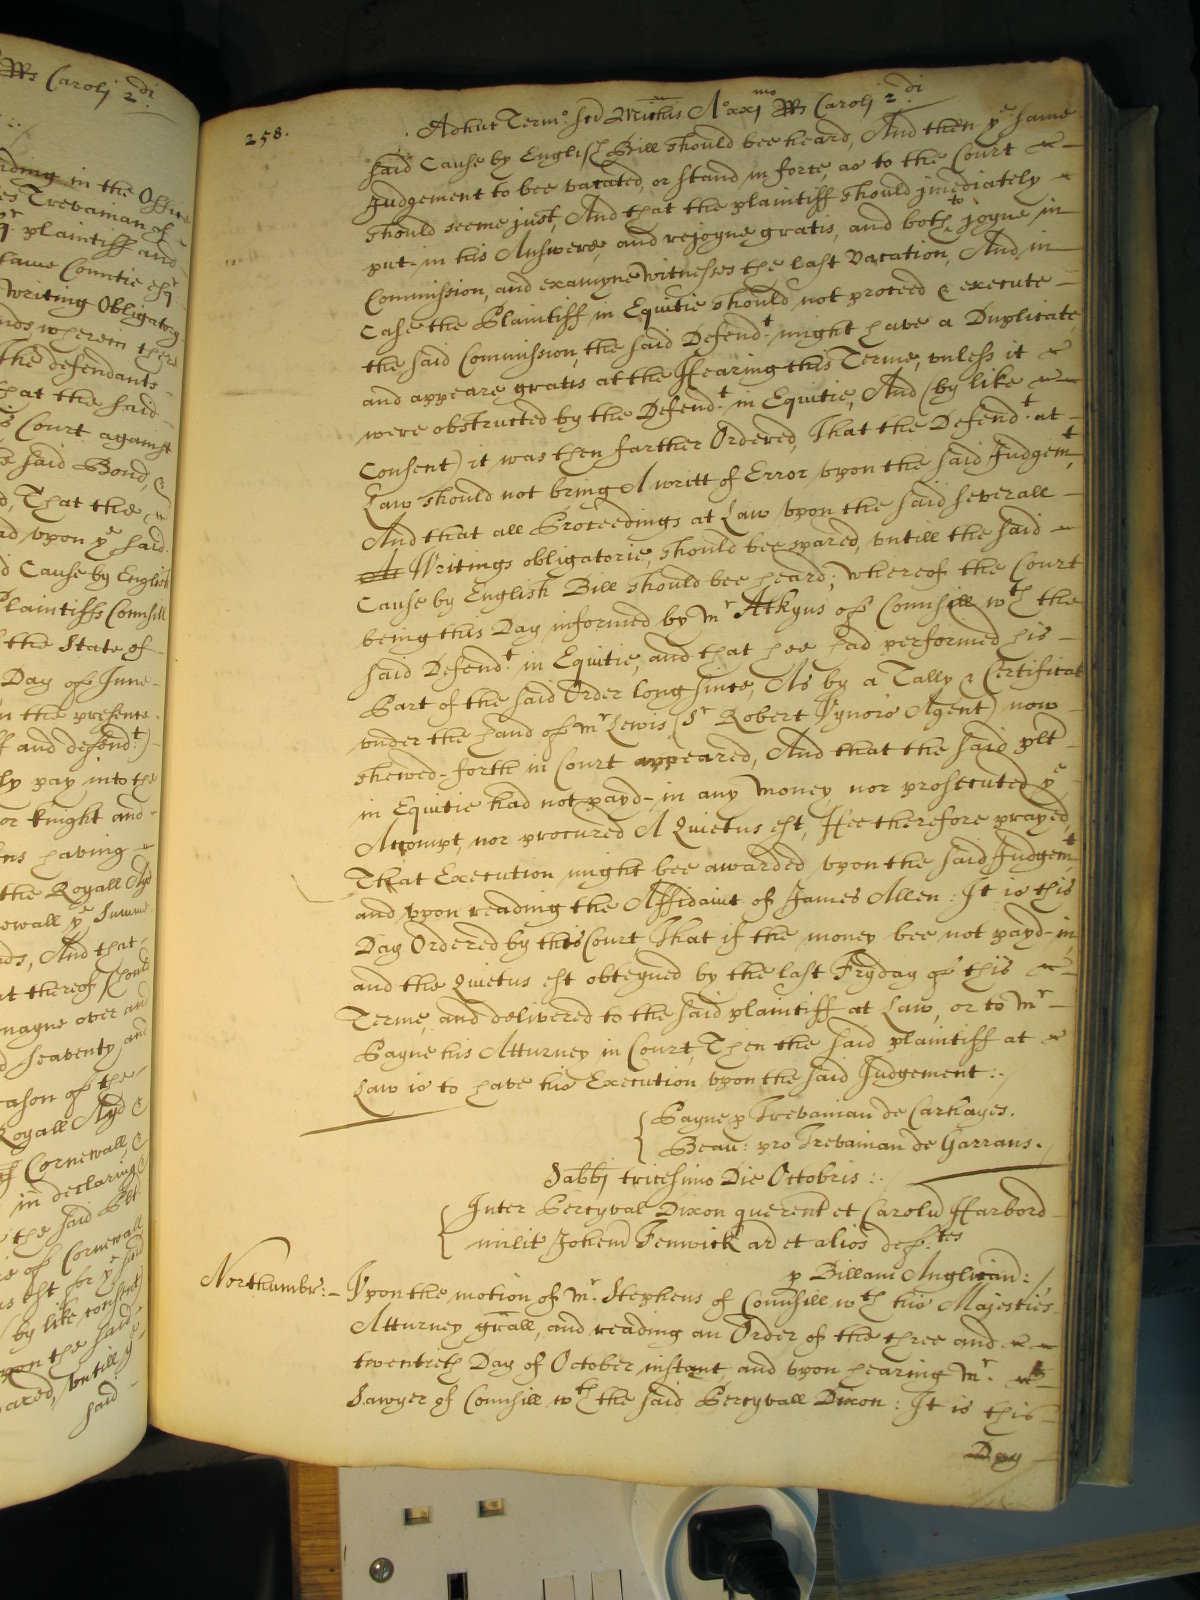 Rs Caroli 2di
nding in the Office
es Trevanian of
qr plaintiff and
same Countie esqr
writing Obligatory
nds wherein there
the defendants
hat the said
s Court against
e said Bond, &
d, That the
nd upon ye said
d Cause by English
Plaintiffs Counsill
the State of
Day of June
n the presente
ff and defendt)
ly pay into the
or knight and
ens having
the Royall Ayd
ewall ye Summe
nds, And that
nt thereof should
mayne over and
d seaventy and
eason of the
Royall Ayd &
of Cornewall, &
in declaring &
the said
e of Cornewall
us est for ye said
by like consent
upon the said
ared, untill ye
said
258.
Adhuc Termo: Sci Michis Ao xximo Rs Caroli 2di
said Cause by English Bill should bee heard, And then ye same
Judgement to bee vacated, or stand in force, as to the Court
should seeme just, And that the plaintiff should jmediately
put-in his Answere, and rejoyne gratis, and both to joyne in
Commission, and examyne witnesses the last Vacation, And in
Case the Plaintiff in Equitie should not proceed & execute
the said Commission, the said Defendt might have a Duplicate
and appeare gratis at the Hearing this Terme, unless it
were obstructed by the Defendt in Equitie, And (by like
Consent) it was then farther Ordered, That the Defendt at
Law should not bring A writt of Error upon the said Judgemt,
And that all Proceedings at Law upon the said severall
Writings obligatorie, should bee spared, untill the said
Cause by English Bill should bee heard; whereof the Court
being this Day informed by Mr Atkyns of Counsill wth the
said Defendt in Equitie, and that hee had performed his
Part of the said Order long since, As by a Tally & Certificat
under the hand of Mr Lewis (Sr Robert Vyners Agent) now
shewed-forth in Court appeared, And that the said plt
in Equitie had not payd-in any Money nor prosecuted ye
Accompt, nor procured A Quietus est, Hee therefore prayed,
That Execution might bee awarded upon the said Judgemt,
and upon reading the Affidavit of James Allen: It is this
Day Ordered by this Court, That if the money bee not payd-in,
and the Quietus est obteyned by the last Fryday of this
Terme, and delivered to the said plaintiff at Law, or to Mr
Payne his Atturney in Court, Then the said plaintiff at
Law is to have his Execution upon the said Judgement:.
Payne p Trevanian de Carhayes.
Beau: pro Trevanian de Garrans.
Sabbi tricesimo Die Octobris:.
Inter Percyval Dixon querent et Carolu Harbord
milit Johem Fenwick ar et alios deftes
p Billam Anglican:
Northumbr:
Upon the motion of Mr. Stephens of Counsill wth his Majesties
Atturney grall, and reading an Order of the three and
twentieth Day of October instant, and upon hearing Mr.
Sawyer of Counsill wth the said Percyvall Dixon: It is this
Day